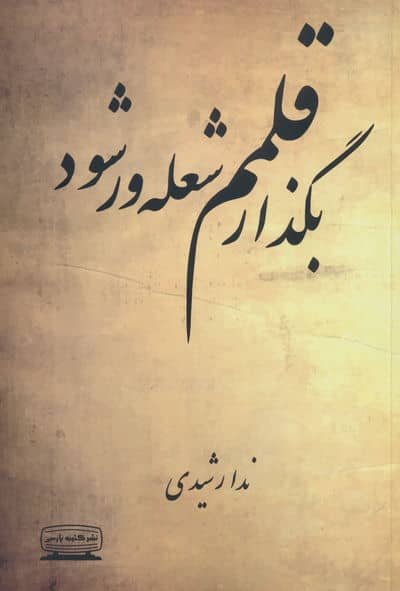 بگذار قلمم شعله‌ور شود
ندا رشیدی
نشر کتیبه پارسی